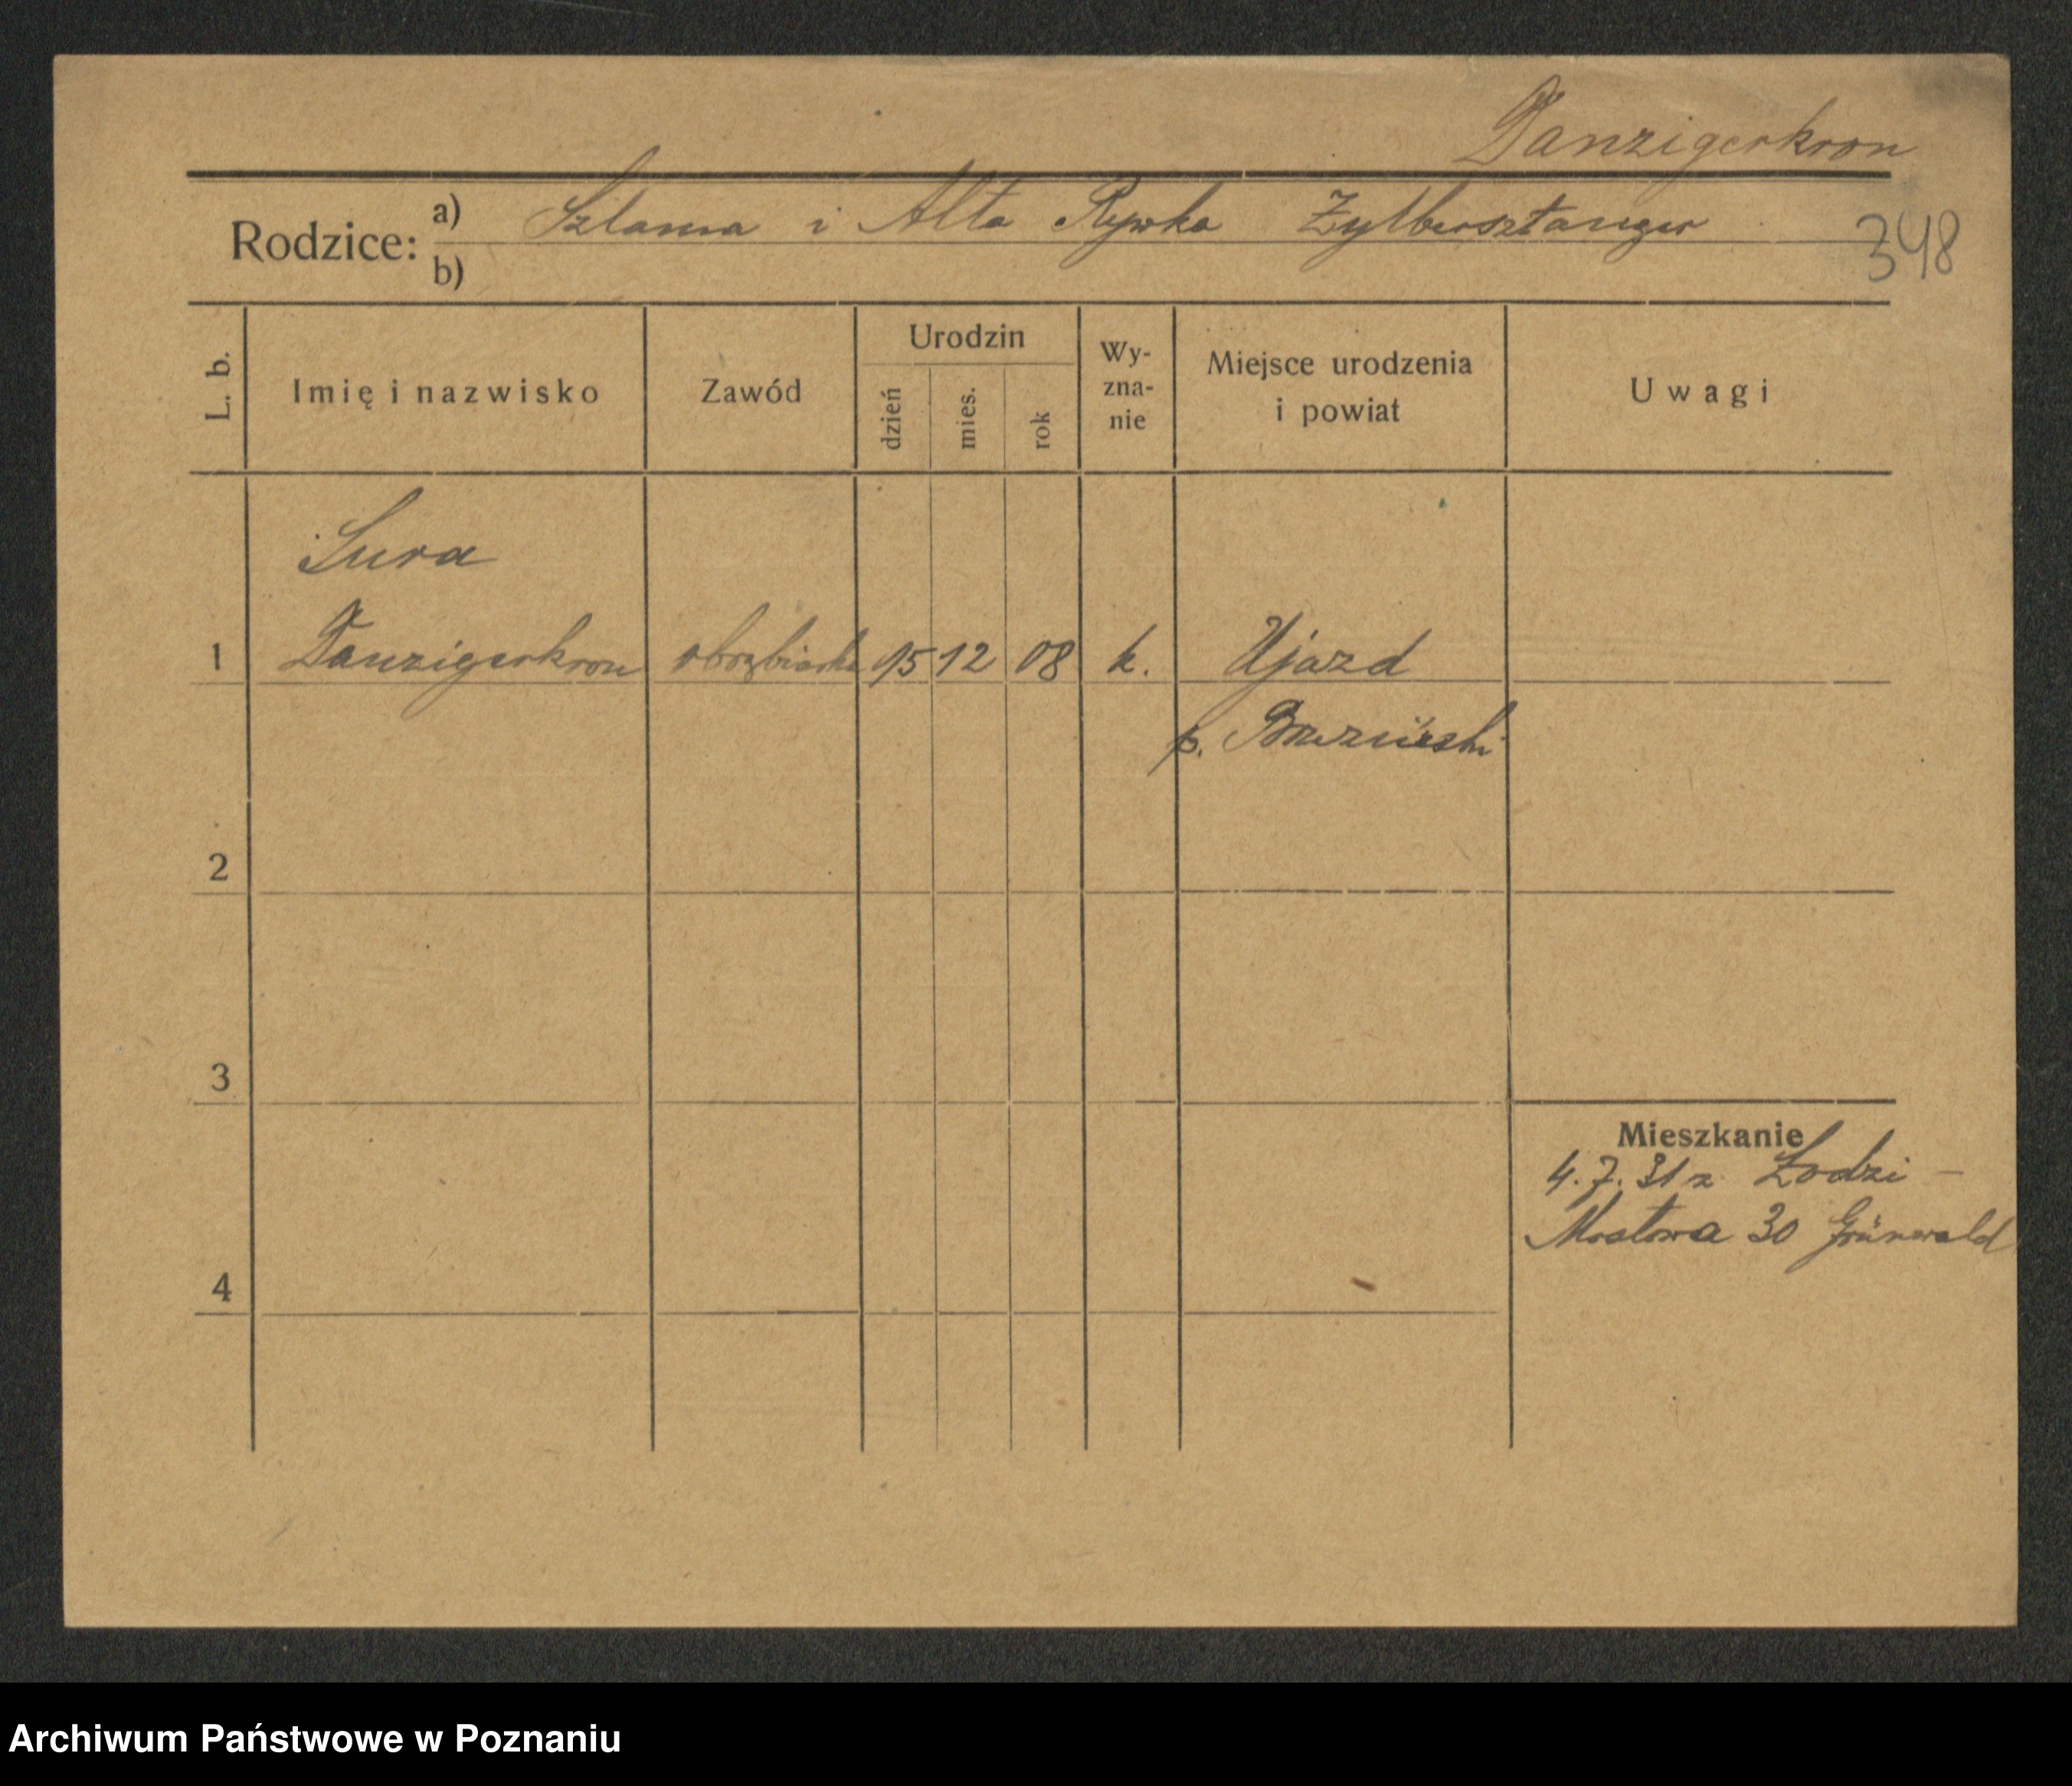 Danzigerkron
Rodzice: a) Szlama i Alta Rywka Zylbersztanger
b)
348
L. b.
Imię i nazwisko
Zawód
Urodzin
dzień
mies.
rok
Wy-
zna-
nie
Miejsce urodzenia
i powiat
Uwagi
Sura
1 Danzigerkron 15 12 08 k. Ujazd
p. Brzeziński
2
3
Mieszkanie
4.7.31 z Łodzi –
Mostowa 30 Grünwald
4
Archiwum Państwowe w Poznaniu